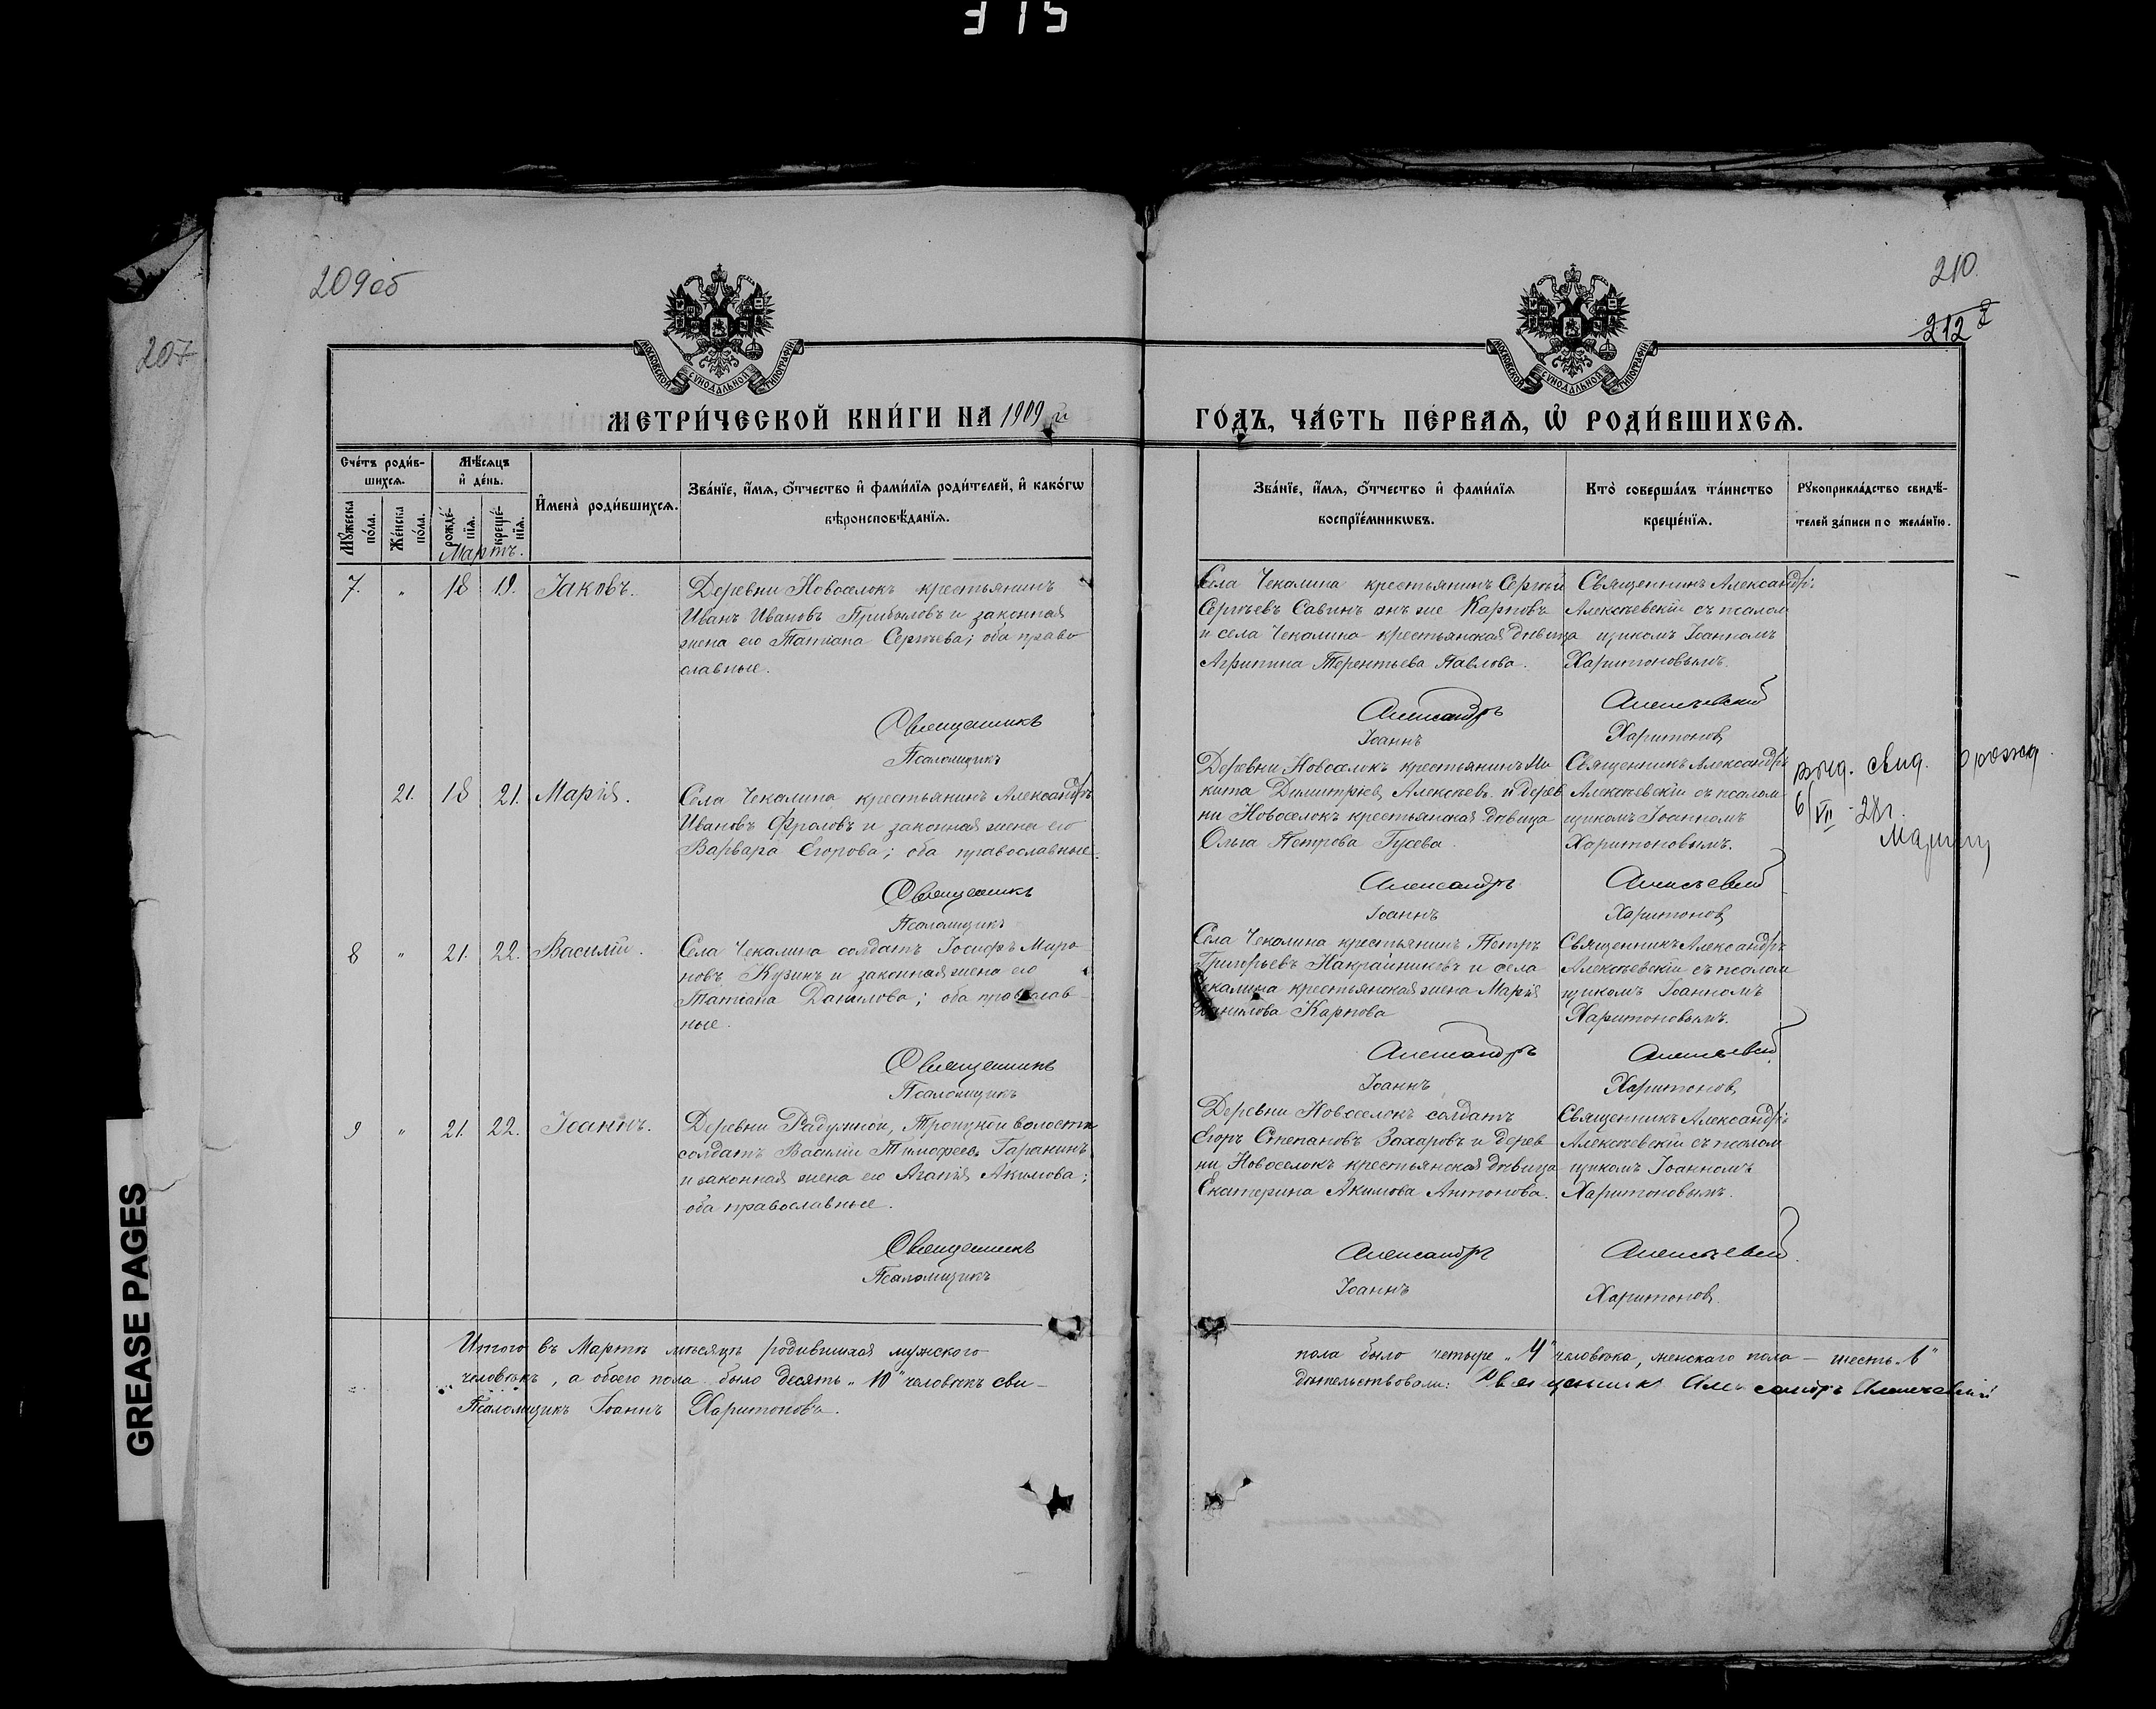 315
209об
207
210
212
МОСКОВСКОЙ СУНОДАЛЬНОЙ ТИПОГРАФІИ
МОСКОВСКОЙ СУНОДАЛЬНОЙ ТИПОГРАФІИ
МЕТРИ́ЧЕСКОЙ КНИ́ГИ НА 1909 й
ГО́ДЪ, ЧА́СТЬ ПЕ́РВАѦ, Ѡ҆ РОДИ́ВШИХСѦ.
Сче́тъ роди́в-
шихсѧ.
Мѣ́сѧцъ
и҆ де́нь.
Мꙋ́жеска по́ла.
Же́нска по́ла.
рожде́-нїѧ.
креще́-нїѧ.
И҆мена̀ роди́вшихсѧ.
Зва́нїе, и҆́мѧ, ѻ҆́тчество и҆ фами́лїѧ роди́телей, и҆ како́гѡ
вѣроисповѣ́данїѧ.
Зва́нїе, и҆́мѧ, ѻ҆́тчество и҆ фами́лїѧ
воспрїе́мникѡвъ.
Кто̀ соверша́лъ та́инство
креще́нїѧ.
Рꙋкоприкла́дство свидѣ́-
телей за́писи по жела́нїю.
Мартъ.
7. " 18 19. Іаковъ.
Деревни Новоселокъ крестьянинъ
Иванъ Ивановъ Прибыловъ и законная
жена его Татіана Сергѣева; оба право
славные.
Священникъ
Псаломщикъ
Села Чекалина крестьянинъ Сергѣй
Сергѣевъ Савинъ онъ же Карповъ
и села Чекалина крестьянская дѣвица
Агрипина Терентьева Павлова.
Александръ
Іоаннъ
Священникъ Александръ
Алексѣевскій съ псалом
щикомъ Іоанномъ
Харитоновымъ.
Алексѣевскій
Харитоновъ
21. 18 21. Марія.
Села Чекалина крестьянинъ Александръ
Ивановъ Фроловъ и законная жена его
Варвара Егорова; оба православные.
Священникъ
Псаломщикъ
Деревни Новоселокъ крестьянинъ Ни
кита Димитріев Алексѣевъ и дерев
ни Новоселокъ крестьянская дѣвица
Ольга Петрова Гусева.
Александръ
Іоаннъ
Священникъ Александръ
Алексѣевскій съ псалом-
щикомъ Іоанномъ
Харитоновымъ.
Алексѣевскій
Харитоновъ
выд. свид. о рожд.
6/VII - 28 г.
8 " 21. 22. Василій.
Села Чекалина солдатъ Іосифъ Миро
новъ Кузинъ и законная жена его
Татіана Данилова; оба православ-
ные.
Священникъ
Псаломщикъ
Села Чекалина крестьянинъ Петръ
Григорьевъ Накрайниковъ и села
Чекалина крестьянская жена Марія
Данилова Карпова
Александръ
Іоаннъ
Священникъ Александръ
Алексѣевскій съ псалом
щикомъ Іоанномъ
Харитоновымъ.
Алексѣевскій
Харитоновъ
9 " 21. 22. Іоаннъ.
Деревни Радушной, Троицкой волости
солдатъ Василій Тимофеев Гаранинъ
и законная жена его Агапія Акимова;
оба православные.
Священникъ
Псаломщикъ
Деревни Новоселокъ солдатъ
Егоръ Степановъ Захаровъ и дерев
ни Новоселокъ крестьянская дѣвица
Екатерина Акимова Антонова.
Александръ
Іоаннъ
Священникъ Александръ
Алексѣевскій съ псалом
щикомъ Іоанномъ
Харитоновымъ.
Алексѣевскій.
Харитоновъ.
Итого въ Мартѣ мѣсяцѣ родившихся мужского
пола было четыре „4" человѣка, женскаго пола — шесть „6"
человѣкъ, а обоего пола было десять „10" человѣкъ сви-
дѣтельствовали: Священникъ Александръ Алексѣевскій
Псаломщикъ Іоаннъ Харитоновъ.
GREASE PAGES